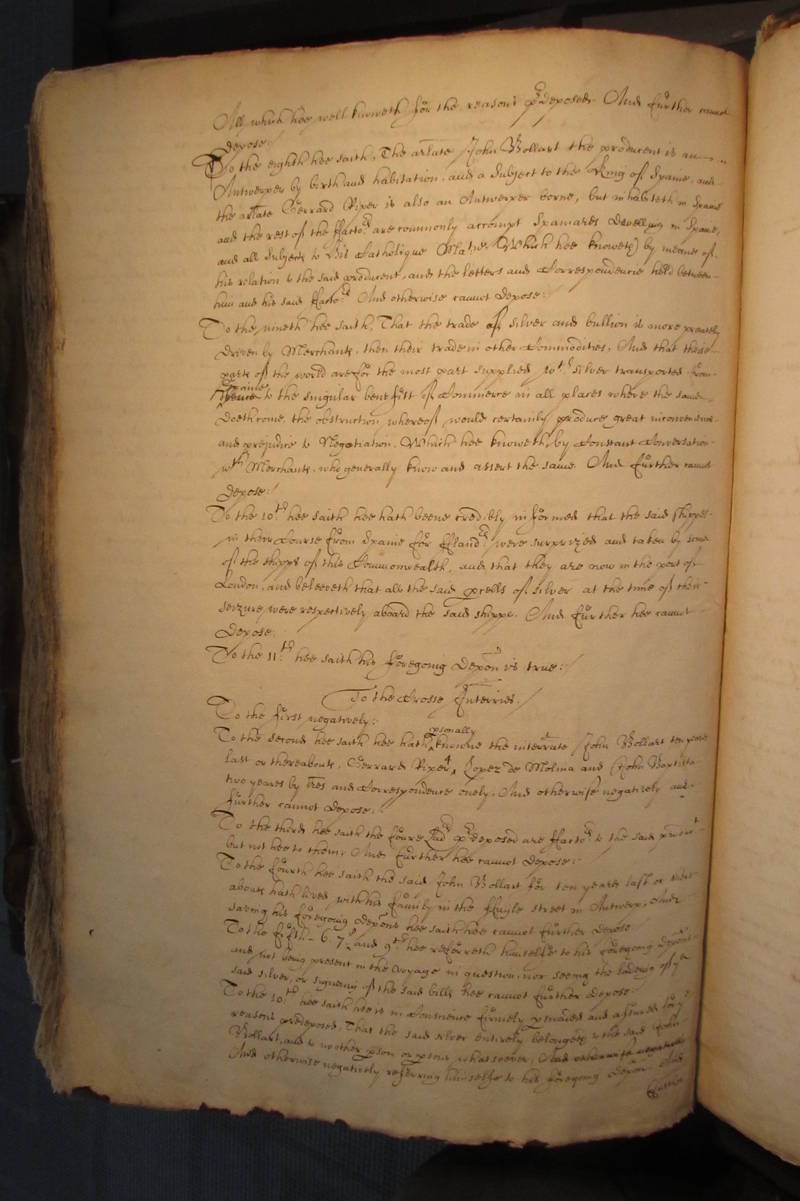 All which hee well knoweth for the reasons predeposed. And further cannot
depose./
To the eighth hee saith, The arlate John Bollart the producent is an
Antwerper by birth and habitation, and a Subject to the King of Spaine, and
the arlate Gerrard Vixer is also an Antwerper borne, but inhabiteth in Spaine
and the rest of the ffactors are commonly accompt Spaniards dwelling in Spaine,
and all Subjects to his Catholique Matie, Which hee knoweth by meanes of
his relation to the said producent, and the letters and Correspondencie held between
him and his said ffactors. And otherwise cannot depose./
To the nineth hee saith, That the trade of silver and bullion is more privately
driven by Merchants, then their trade in other Commodities, And that these
parts of the world are for the most part supplied wth silver transported from
Spaine
thence to the singular benefitt of Commerce in all places where the same
doeth come, the obstruction whereof would certainly produce great inconvenience
and prejudice to Negotiation. Which hee knoweth by Constant Conversation
wth Merchants, who generally know and assert the same. And further cannot
depose./
To the 10th hee saith hee hath beene credibly informed that the said shippes
in their Course from Spaine for Flanders were surprized and taken by some
of the shipps of this Commonwealth, and that they are now in the port of
London, and beleeveth that all the said prcells of silver at the time of their
seizure were respectively aboard the said shipps. And further hee cannot
depose.
To the 11th hee saith his foregoing deposn is true./
To the Crosse Interries./
To the first negatively./
psonally
To the second hee saith hee hath knowne the interrate John Bollart ten yeares
last or thereabouts, Gerrard Vixer, Lopez de Molina and John Baptista
five yeares by lres and Correspondence onely. And otherwise negatively and
further cannot depose./
To the third hee saith the foure predeposed are ffactors to the said producent
but not hee to them. And further hee cannot depose./
To the fourth hee saith the said John Bollart for ten yeares last or there
abouts hath lived with his family in the street in Antwerp, And
saving his foregoing deposns hee saith hee cannot further depose
To the fifth 6. 7th and 9th hee referreth himselfe to his foregoing deposn
and not being present in the voyage in question, nor seeing the ladeing of ye
said silver, or signeing of the said bills hee cannot further depose
To the 10th hee saith hee is in Conscience firmely pswaded and assured for ye
reasons predeposed, That the said silver entirely belongeth to the said John
Bollart, and to no other pson or psons whatsoever,
And otherwise negatively referring himselfe to his foregoing deposn And